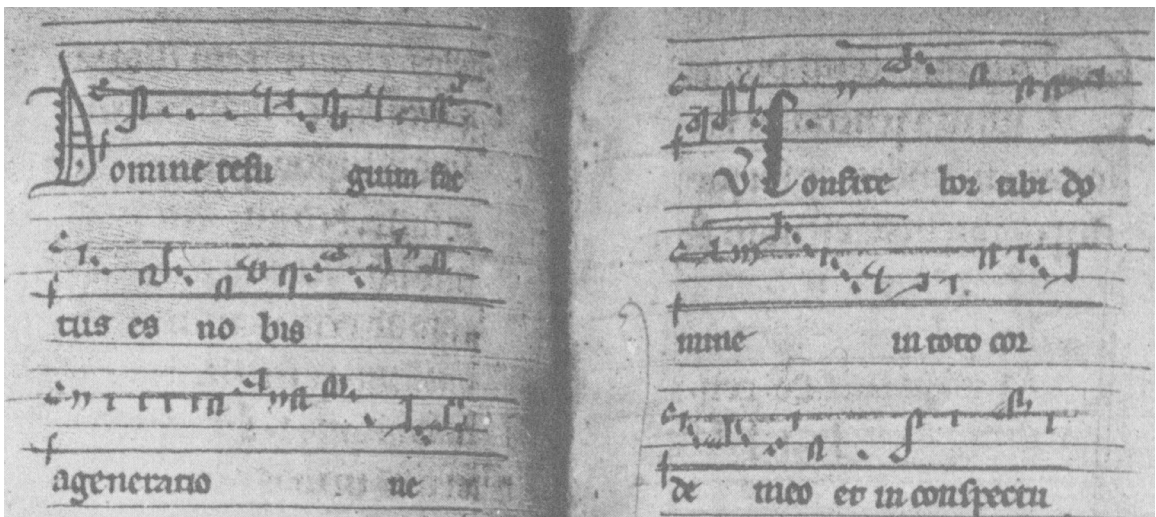 Domine refu gium fac
tus es no bis
a generatio ne
V Confite bor tibi do
mine in toto cor
de meo et in conspectu